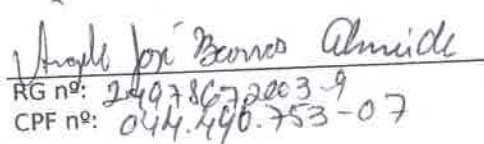 José Barros Almeida
RG nº: 24978672003-9
CPF nº: 044.490.753-07